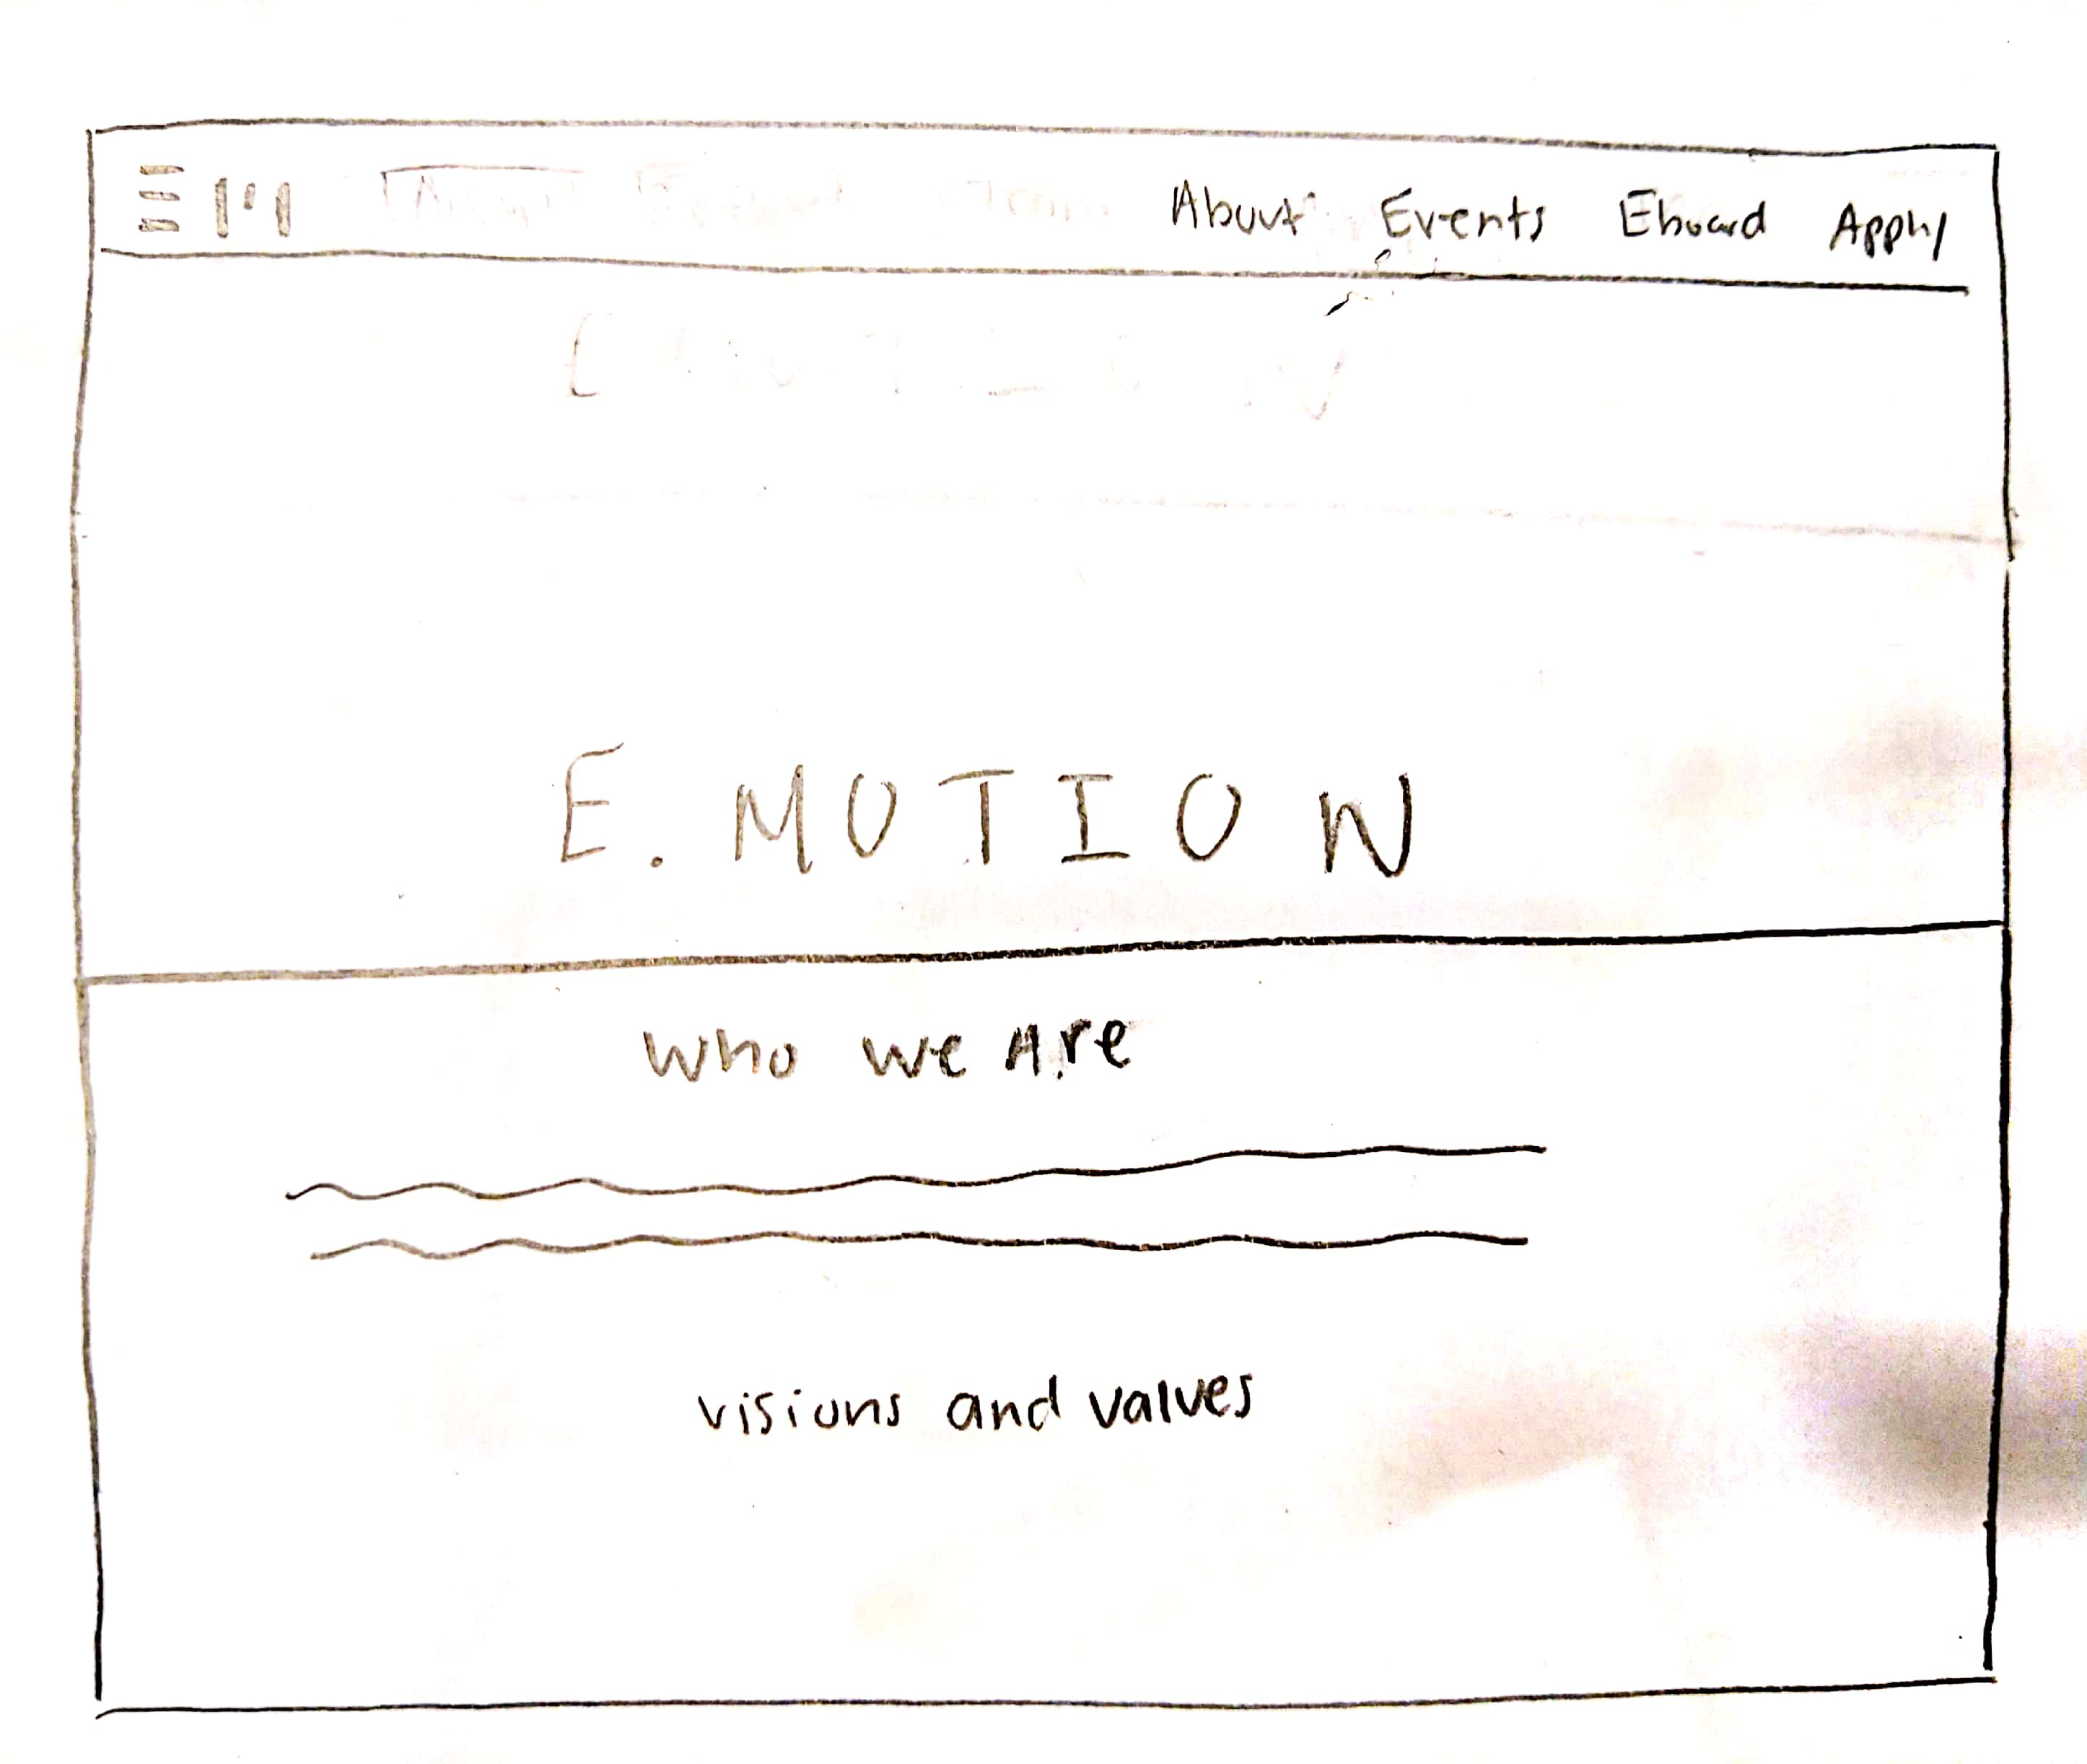 About Events Eboard Apply
E. MOTION
Who we Are
visions and values